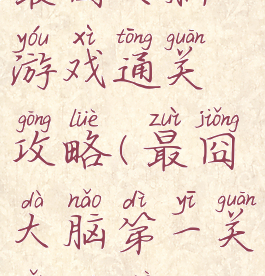 yóu xì tōng guān
游戏通关
gōng lüè zuì jiǒng
攻略(最囧
dà nǎo dì yī guān
大脑第一关